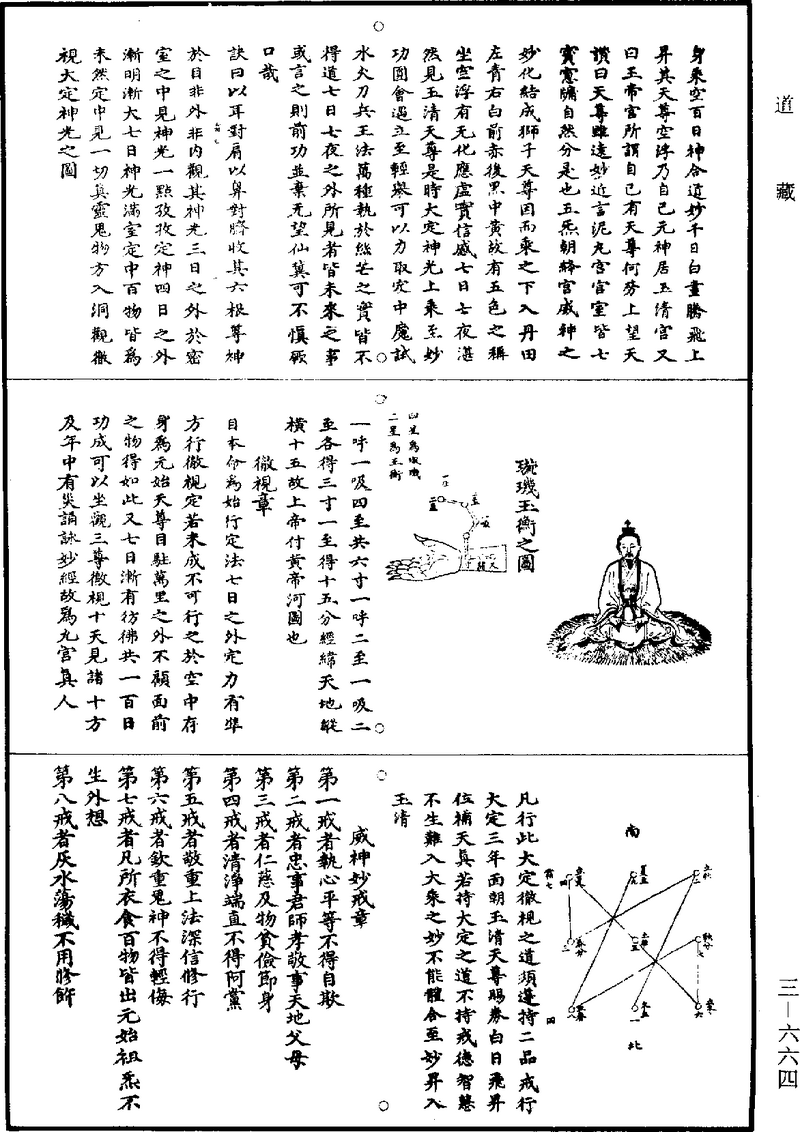 道藏
身乘空百日神合道妙千日白晝騰飛上
昇其天尊空浮乃自己元神居玉清宮又
曰玉帝宮所謂自己有天尊何勞上望天
讚曰天尊雖遠妙近言泥丸宮宮室皆七
寶窻牖自然分是也五炁朝絳宮威神之
妙化結成獅子天尊因而乘之下入丹田
左青右白前赤後黑中黄故有五色之稱
坐空浮有无化應虛實信感七日七夜湛
然見玉清天尊是時大定神光上乘至妙
功圓會過立至輕舉可以力取究中魔試
水火刀兵王法萬種執於絲芒之實皆不
得道七日七夜之外所見者皆未來之事
或言之則前功並棄无望仙冀可不慎厥
口哉
訣曰以耳對肩以鼻對臍收其六根尊神
於目非外非内觀其神光三日之外於密
室之中見神光一點孜孜定神四日之外
漸明漸大七日神光滿室定中百物皆爲
未然定中見一切真靈鬼物方入洞觀徹
視大定神光之圖
璇璣玉衡之圖
四星爲璇璣
二星爲玉衡
一呼一吸四至共六寸一呼二至一吸二
至各得三寸一至得十五分經緯天地縱
横十五故上帝付黄帝河圖也
徹視章
日本命爲始行定法七日之外定力有準
方行徹視定若未成不可行之於空中存
身爲元始天尊目駐萬里之外不顧面前
之物得如此又七日漸有彷彿共一百日
功成可以坐觀三尊徹視十天見諸十方
及年中有災誦詠妙經故爲九宮真人
南
立夏
四
夏至
九
立秋
二
春分
三
秋分
七
立春
八
冬至
一
六
北
凡行此大定徹視之道須蓬持二品戒行
大定三年面朝玉清天尊賜券白日飛昇
位補天真若持大定之道不持戒德智慧
不生難入大乘之妙不能體合至妙昇入
玉清
威神妙戒章
第一戒者執心平等不得自欺
第二戒者忠事君師孝敬事天地父母
第三戒者仁慈及物貧儉節身
第四戒者清淨端直不得阿黨
第五戒者敬重上法深信修行
第六戒者欽重鬼神不得輕侮
第七戒者凡所衣食百物皆出元始祖炁不
生外想
第八戒者灰水蕩穢不用修飾
三—六六四